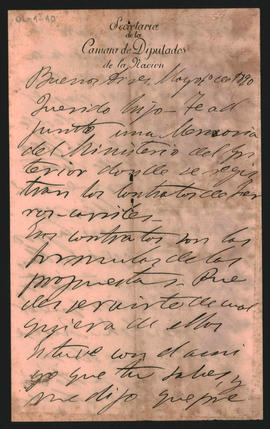 Secretaria
de la
Camara de Diputados
de la Nacion
Buenos Aires, Mayo de 1890
Querido hijo - Te ad
junto una Memoria
del Ministerio del In
terior donde se regis
tran los contratos de fer
ro-carriles.
Los contratos son las
formulas de las
propuestas. Pue
des servirte de cual
quiera de ellos
Estuve con el ami
go que tu sabes, y
me dijo que pre